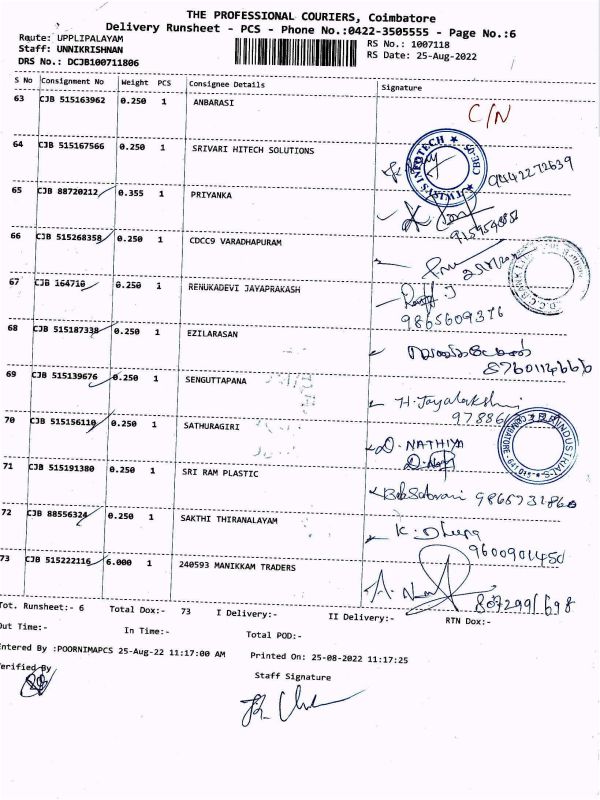 THE PROFESSIONAL COURIERS, Coimbatore
Delivery Runsheet - PCS - Phone No.:0422-3505555 - Page No.:6
Route: UPPLIPALAYAM
RS No.: 1007118
Staff: UNNIKRISHNAN
RS Date: 25-Aug-2022
DRS No.: DCJB100711806
S No Consignment No Weight PCS Consignee Details Signature
63 CJB 515163962 0.250 1 ANBARASI C/N
64 CJB 515167566 0.250 1 SRIVARI HITECH SOLUTIONS 9442272639
65 CJB 88720212 0.355 1 PRIYANKA
66 CJB 515268358 0.250 1 CDCC9 VARADHAPURAM
67 CJB 164710 0.250 1 RENUKADEVI JAYAPRAKASH
9865609376
68 CJB 515187338 0.250 1 EZILARASAN
69 CJB 515139676 0.250 1 SENGUTTAPANA H. Jayalakshmi
70 CJB 515156110 0.250 1 SATHURAGIRI D. NATHIYA
71 CJB 515191380 0.250 1 SRI RAM PLASTIC
72 CJB 88556324 0.250 1 SAKTHI THIRANALAYAM
9600901450
73 CJB 515222116 6.000 1 240593 MANIKKAM TRADERS
Tot. Runsheet:- 6 Total Dox:- 73 I Delivery:- II Delivery:- RTN Dox:-
Out Time:- In Time:- Total POD:-
Entered By :POORNIMAPCS 25-Aug-22 11:17:00 AM Printed On: 25-08-2022 11:17:25
Verified By Staff Signature